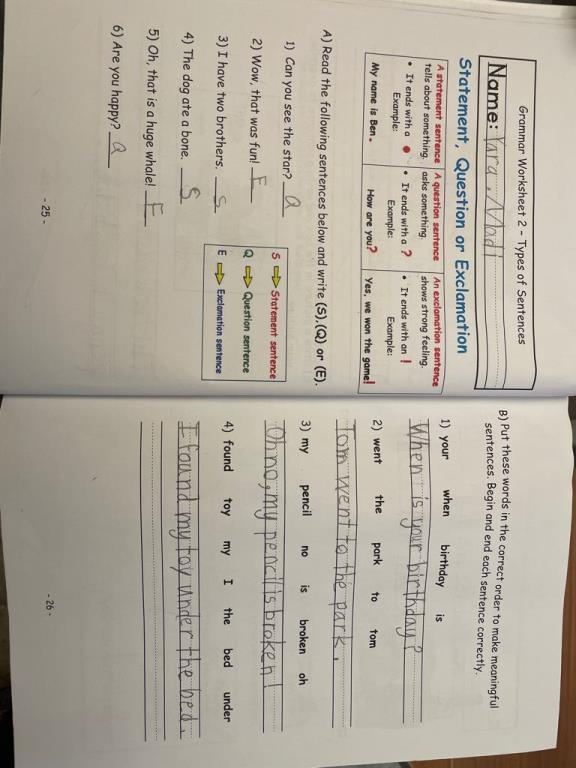 Grammar Worksheet 2 - Types of Sentences
Name: Yara
Statement, Question or Exclamation
A statement sentence tells about something.
• It ends with a .
Example:
My name is Ben.
A question sentence asks something.
• It ends with a ?
Example:
How are you?
An exclamation sentence shows strong feeling.
• It ends with an !
Example:
Yes, we won the game!
A) Read the following sentences below and write (S),(Q) or (E).
1) Can you see the star? Q
2) Wow, that was fun! E
3) I have two brothers. S
4) The dog ate a bone. S
5) Oh, that is a huge whale! E
6) Are you happy? Q
S ⇨ Statement sentence
Q ⇨ Question sentence
E ⇨ Exclamation sentence
- 25 -
B) Put these words in the correct order to make meaningful
sentences. Begin and end each sentence correctly.
1) your when birthday is
When is your birthday?
2) went the park to tom
Tom went to the park.
3) my pencil no is broken oh
Oh no, my pencil is broken!
4) found toy my I the bed under
I found my toy under the bed.
- 26 -